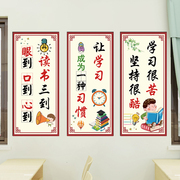 读书三到
眼到口到心到
让学习
成为一种习惯
学习很苦
坚持很酷